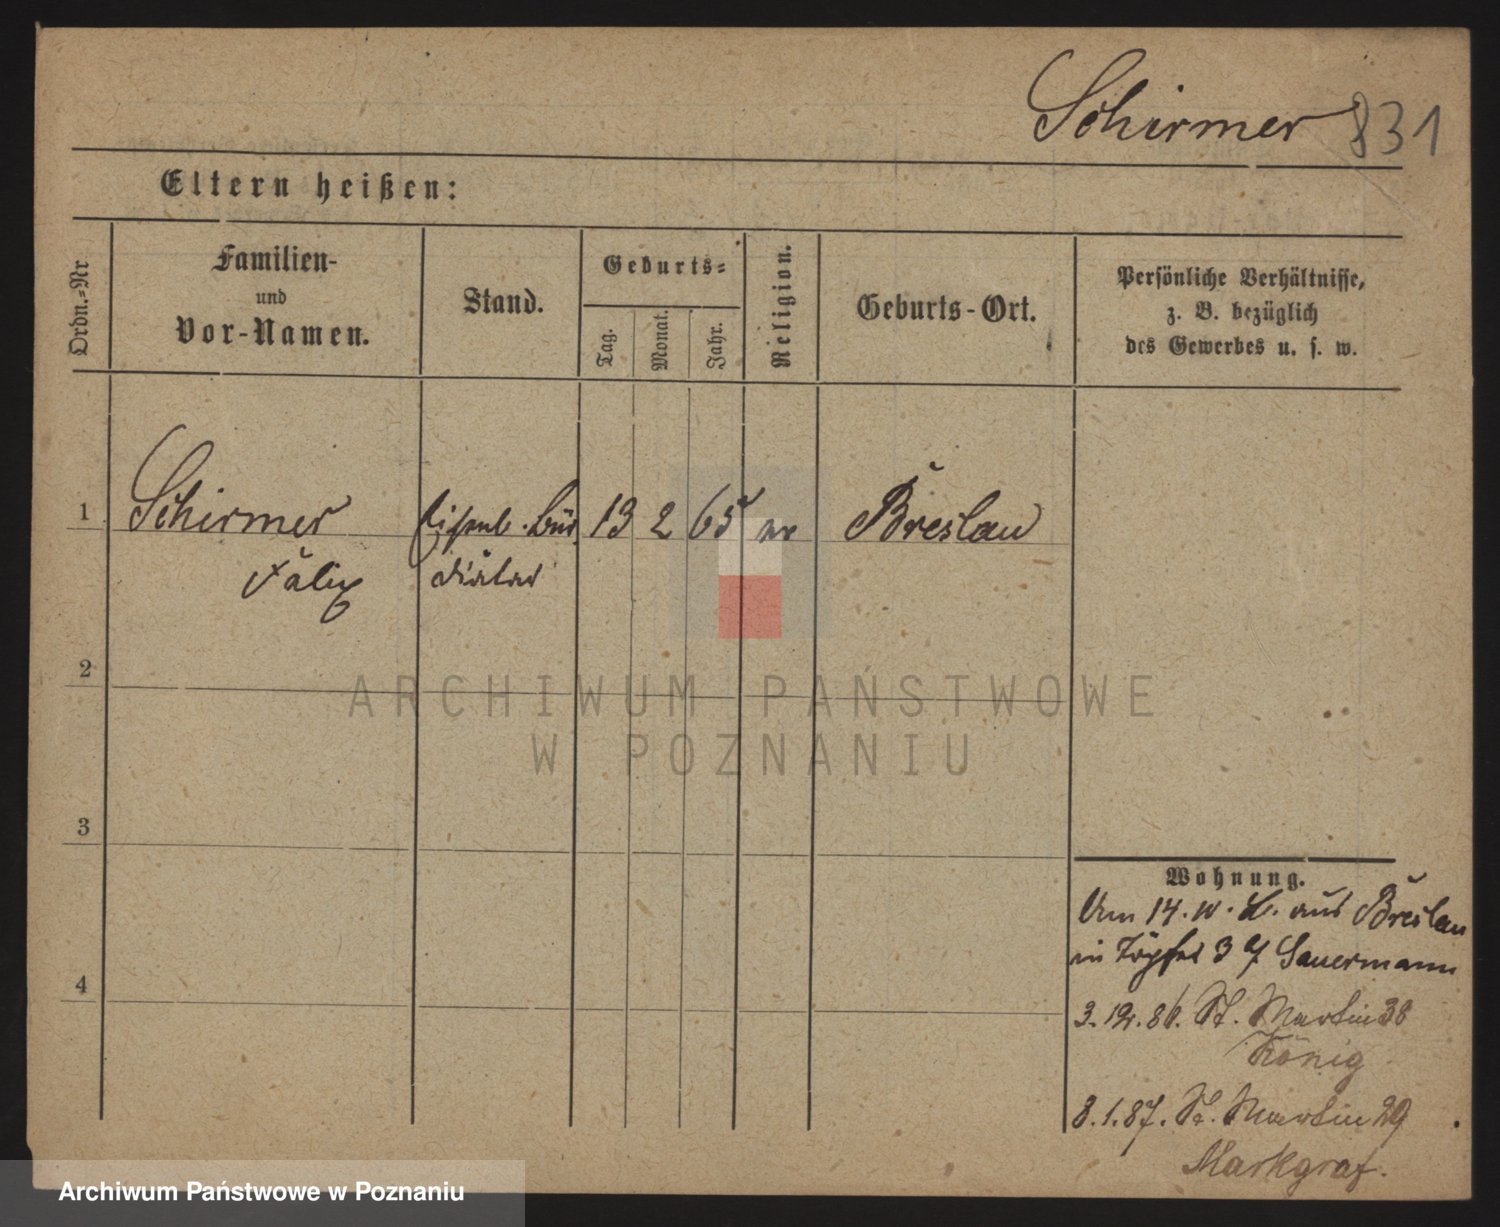 Schirmer 831
Eltern heißen:
Ordn.-Nr
Familien-
und
Vor-Namen.
Stand.
Geburts-
Tag.
Monat.
Jahr.
Religion.
Geburts-Ort.
Persönliche Verhältnisse,
z. B. bezüglich
des Gewerbes u. s. w.
1 Schirmer Eisenb. Bür. 13 2 65 ev Breslau
Felix diätar
2
3
4
ARCHIWUM PAŃSTWOWE
W POZNANIU
Wohnung.
Am 14. aus Breslau
in 3 Sauermann
3. 12. 86. St. Martin 38
König
8. 1. 87. St. Martin 29
Markgraf.
Archiwum Państwowe w Poznaniu